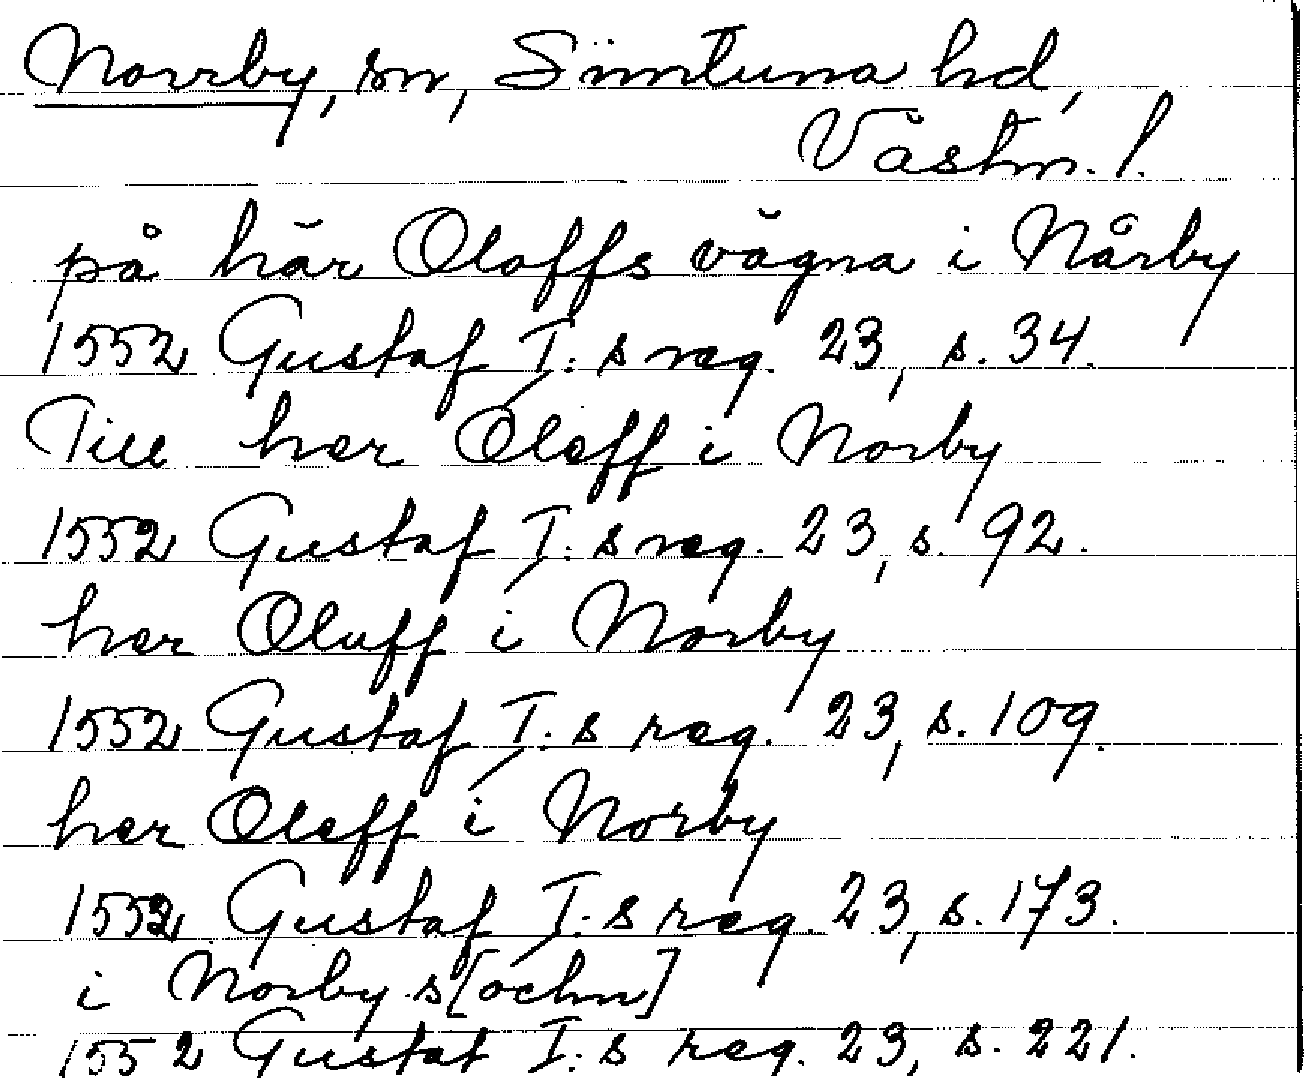 Norrby, sn, Simtuna hd,
Västm. l.
på här Oloffs vägna i Nårby
1552 Gustaf I:s reg. 23, s. 34.
Till her Oleff i Norby
1552 Gustaf I:s reg. 23, s. 92.
her Oluff i Norby
1552 Gustaf I:s reg. 23, s. 109.
her Oleff i Norby
1552 Gustaf I:s reg. 23, s. 173.
i Norby s[ochn]
1552 Gustaf I:s reg. 23, s. 221.